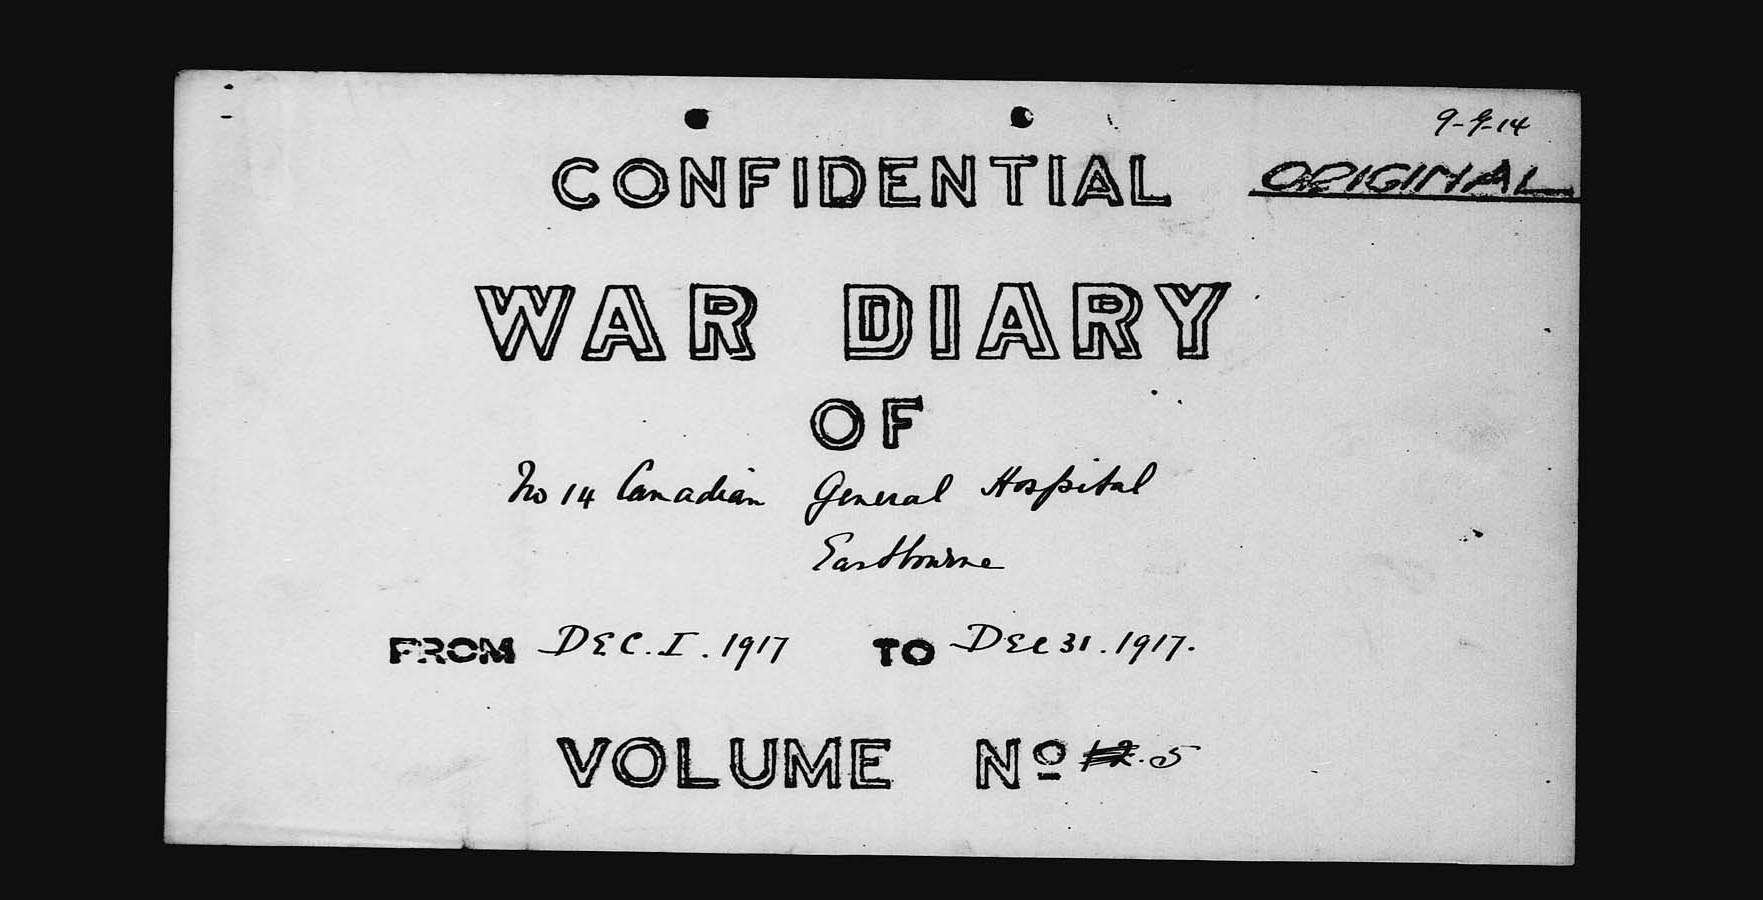 9-9-14
CONFIDENTIAL ORIGINAL
WAR DIARY
OF
No 14 Canadian General Hospital
Eastbourne
FROM DEC. I. 1917 TO DEC 31. 1917.
VOLUME Nº 5